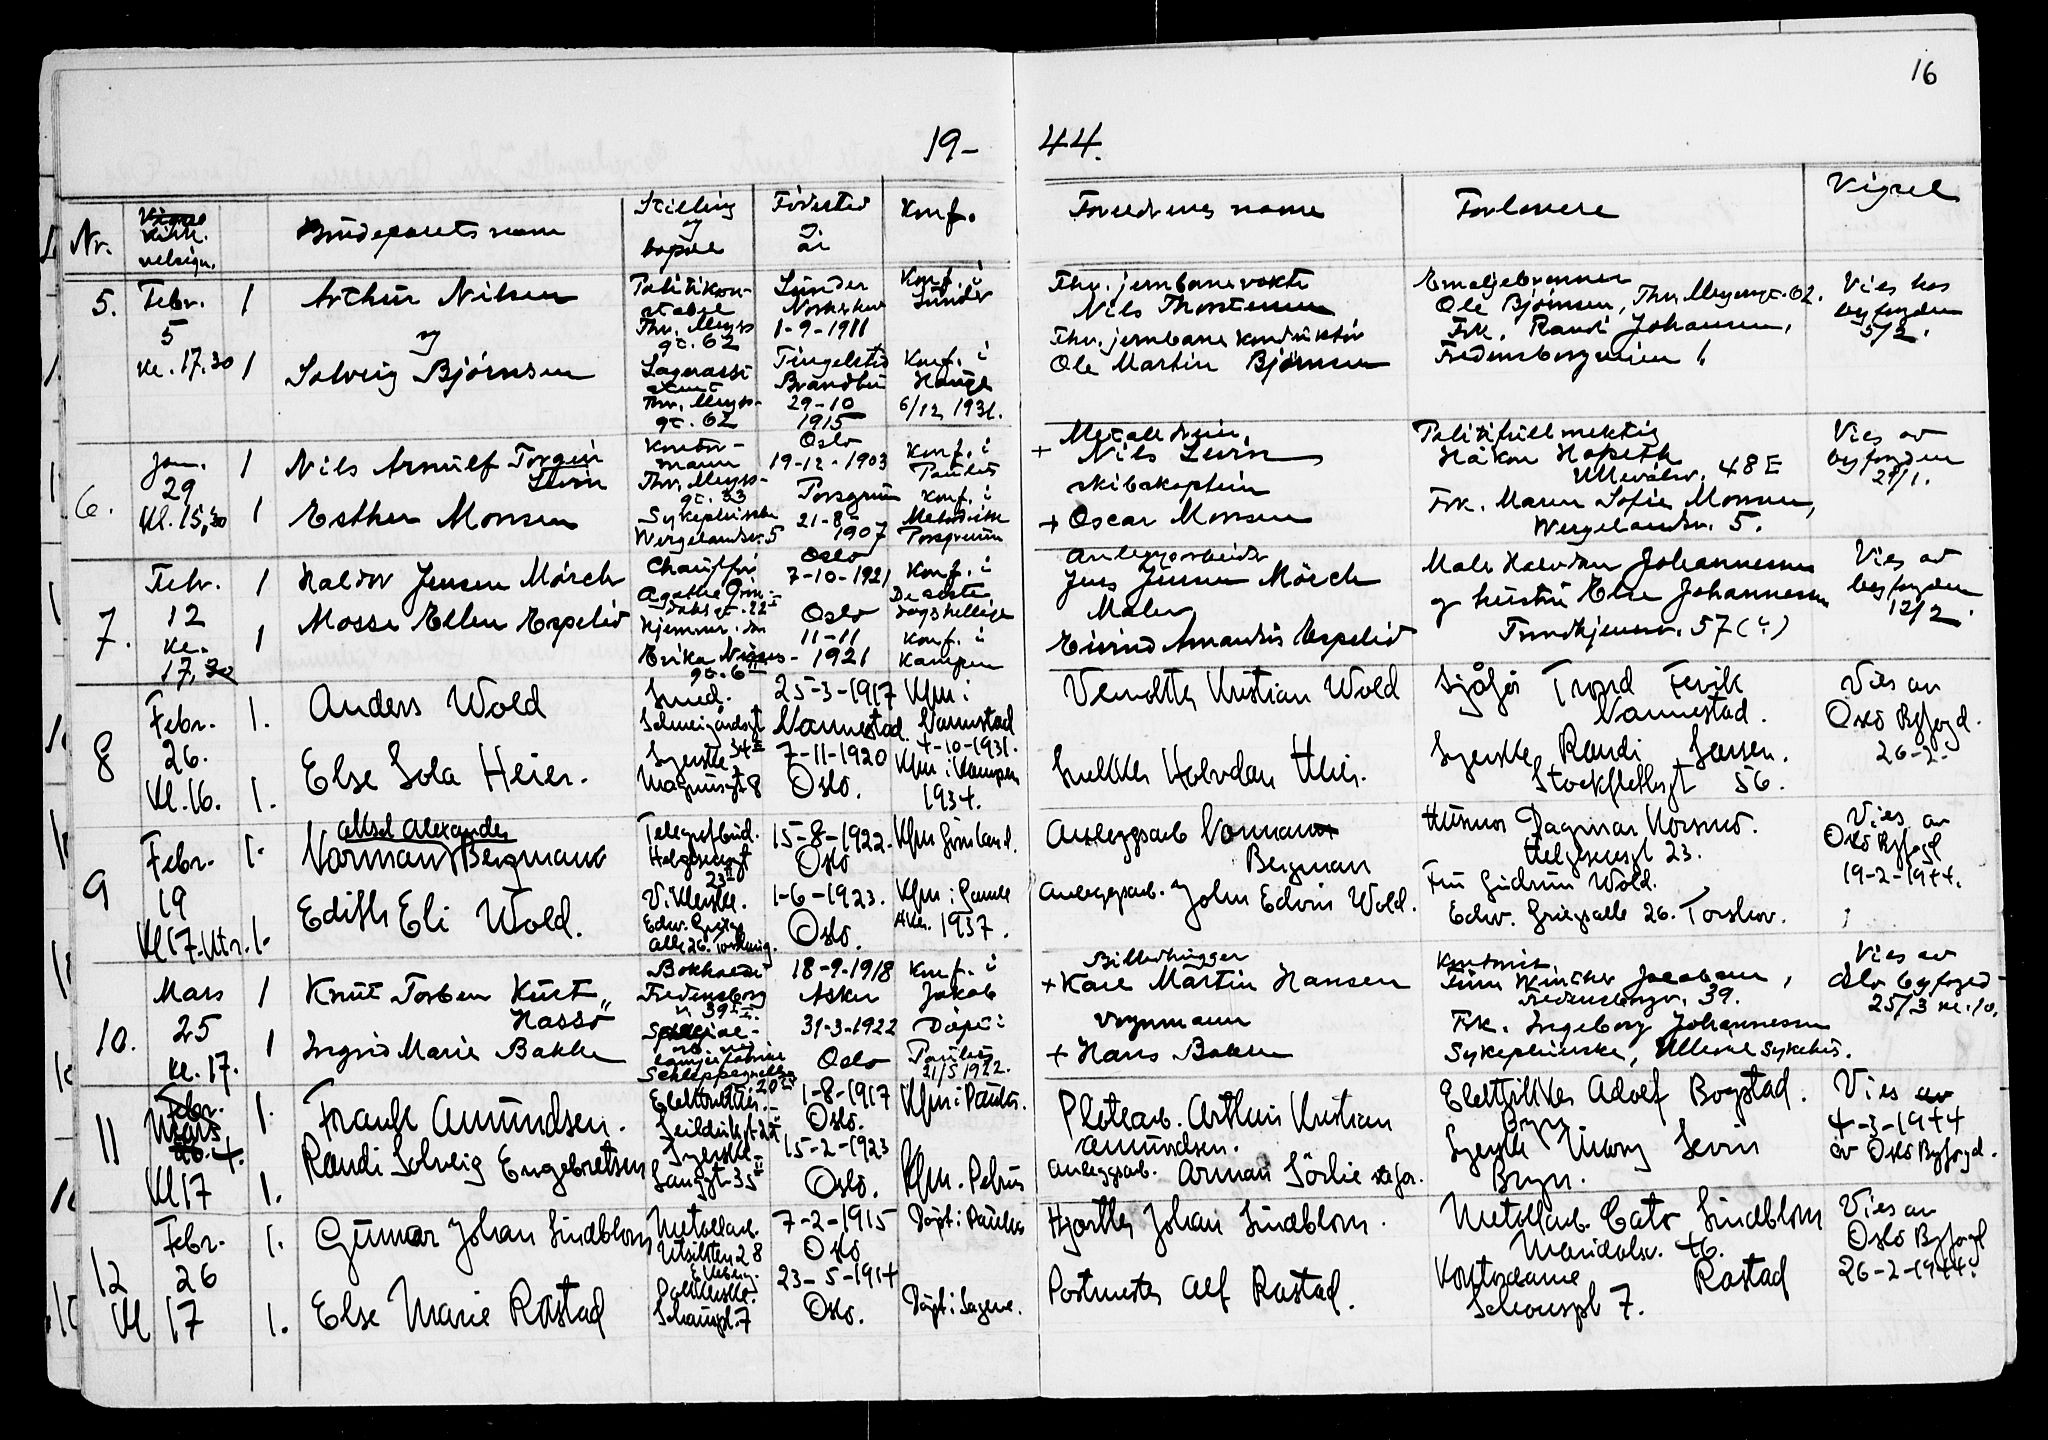 16
19- 44.
Nr.
Vigsel
Kirk.
velsign.
Brudeparets navn
Stilling
og
bopæl
Fødested
og
år
Konf.
Foreldrenes navne
Forlovere
Vigsel
5.
Febr.
5
kl. 17.30
1
1
Arthur Nilsen
og
Solveig Bjørnsen
Politikon-
stabel
Thv. Meyers-
gt. 62
Lagerassi-
stent
Thv. Meyers-
gt. 62
Lunder
Norderhov
1-9-1911
Tingelstad
Brandbu
29-10
1915
Konf. i
Lunder
Konf. i
Hauge
6/12 1931.
Fhv. jernbanevokter
Nils Thorstensen
Fhv. jernbanekonduktør
Ole Martin Bjørnsen
Emaljebrenner
Ole Bjørnsen, Thv. Meyersgt. 62.
Frk. Randi Johansen,
Fredensborgveien 1
Vies hos
byfogden
5/2.
6.
Jan.
29
Kl. 15,30
1
1
Nils Arnulf Torgin
Levin
Esther Monsen
Kontor-
mann
Thv. Meyers-
gt. 33
Sykepleierske
Wergelandsv. 5
Oslo
19-12-1903
Porsgrunn
21-8-
1907
Konf. i
Paulus
Konf. i
Metodistk
Porsgrunn
+ Nils Levin
skibskaptein
+ Oscar Monsen
Politifullmektig
Håkon Hopseth
Ullevålsv. 48 E
Frk. Maren Sofie Monsen,
Wergelandsv. 5.
Vies av
byfogden
29/1.
7.
Febr.
12
kl.
17,30
1
1
Haldor Jensen Mörch
Mosse Ellen Espelid
Chauffør
Agathe Grøn-
dahlsgt. 22 I
Hjemmev. da
Erika Nissens-
gt. 6 II
Oslo
7-10-1921
Oslo
11-11
1921
Konf. i
De siste
dagshellige
Konf. i
Kampen
Anleggsarbeider
Jens Jensen Mörch
Maler
Eivind Amandus Espelid
Maler Halvdan Johannessen
og hustru Else Johannessen
Trondhjemsv. 57 (?)
Vies av
byfogden
12/2.
8
Febr.
26.
Kl. 16.
1.
1.
Anders Wold
Else Sola Heier.
Smed.
Schweigaardsgt
34 II
Syerske
Magnusgt 8
25-3-1917
Nannestad.
7-11-1920
Oslo.
Kfm i
Nannestad
4-10-1931.
Kfm i Kampen
1934.
Vemekter Kristian Wold
Snekker Halvdan Heier.
Sjåfør Trond Fevik
Nannestad.
Syerske Randi Jansen.
Stockflethsgt 56.
Vies av
Oslo Byfogd.
26-2.
9
Febr.
19
Kl 17. Utv.
1.
1.
Aksel Alexander
Norman Bergmann
Edith Eli Wold.
Telegrafbud.
Helgesensgt
23 II
Viklerske.
Edv. Griegs
Alle 26. Torshaug.
15-8-1922.
Oslo
1-6-1923.
Oslo.
Kfm Grönland.
Kfm i Gamle
Aker. 1937.
Anleggsarb Norman
Bergman
Anleggsarb. John Edvin Wold.
Husmor Dagmar Korsmo.
Helgesensgt 23.
Fru Gudrun Wold.
Edv. Griegsalle 26. Torshov.
Vies av
Oslo Byfogd
19-2-1944.
10.
Mars
25
kl. 17.
1
1
Knut Torben Kurt
Hassø
Ingrid Marie Bakke
Bokholder
Fredensborg
v. 39 II
Schleppegrells
gt. 20 II
18-9-1918
Asker
31-3-1922
Oslo
Konf. i
Jakob
Döpt i
Paulus
21/5 1922.
Billedhugger
+ Karl Martin Hansen
Vognmann
+ Hans Bakke
Kontorist
Finn Wincher Jacobsen,
Fredensborgv. 39.
Frk. Ingeborg Johannessen
Sykepleierske, Ullevål Sykehus.
Vies av
Oslo byfoged
25/3 kl. 10.
11
Febr.
Mars
26. 4.
Kl 17
1.
1.
Frank Amundsen.
Randi Solveig Engebretsen
Elektriker.
Seilduksgt 25 I
Syerske
Langgt 35 II
1-8-1917
Oslo.
15-2-1923
Oslo.
Kfm i Paulus.
Kfm. Petrus
Platearb. Arthur Kristian
Amundsen.
Anleggsarb. Arman Sörlie stefar.
Elektriker Adolf Bogstad.
Bryn
Syerske Mary Levin
Bryn.
Vies av
4-3-1944
av Oslo Byfogd.
12
Febr.
26
Kl 17
1.
1.
Gunnar Johan Lindblom
Else Marie Rastad
Metallarb.
Utsikten 28
Pakkerske.
Schouspl. 7
7-2-1915
Oslo
23-5-1914
Oslo.
Döpt i Paulus
Döpt i Sagene.
Johan Lindblom.
Postmester Alf Rastad.
Metallarb. Cato Lindblom
Maridalsv. 46.
Kontordame Rastad
Schouspl 7.
Vies av
Oslo Byfogd
26-2-1944.